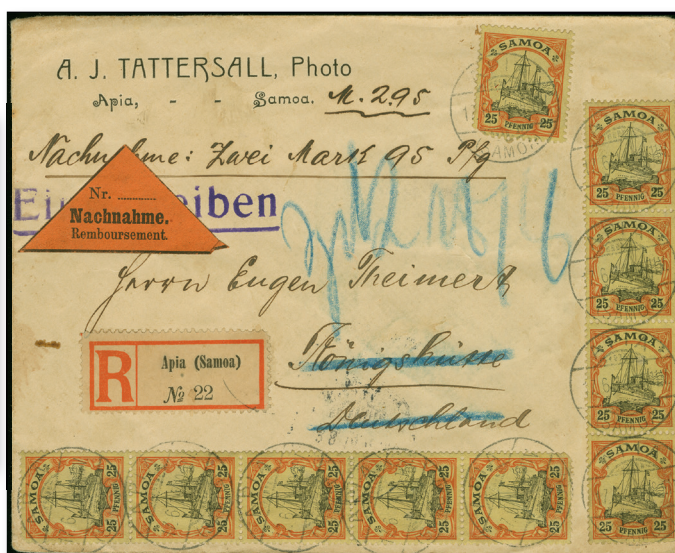 A. J. TATTERSALL, Photo
Apia, - - Samoa. M. 2.95
SAMOA
25 PFENNIG 25
Nachnahme: Zwei Mark 95 Pfg
Nr. ............
Nachnahme.
Remboursement.
Ein eiben
Herrn Eugen Theimert
Königshütte
Deutschland
R
Apia (Samoa)
№ 22
SAMOA
25 PFENNIG 25
SAMOA
25 PFENNIG 25
SAMOA
25 PFENNIG 25
SAMOA
25 PFENNIG 25
SAMOA
25 PFENNIG 25
SAMOA
25 PFENNIG 25
SAMOA
25 PFENNIG 25
SAMOA
25 PFENNIG 25
SAMOA
25 PFENNIG 25